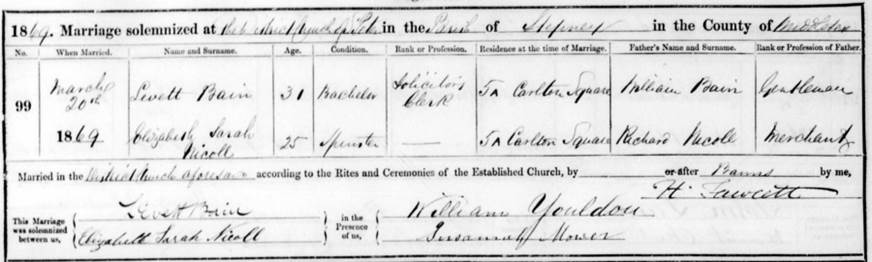 1869. Marriage solemnized at the District Church of St Peter in the Parish of Stepney in the County of Middlesex
No. When Married. Name and Surname. Age. Condition. Rank or Profession. Residence at the time of Marriage. Father's Name and Surname. Rank or Profession of Father.
99 March 20th 1869 Levett Bain 31 Bachelor Solicitor's Clerk 5A Carlton Square William Bain Gentleman
Elizabeth Sarah Nicoll 25 Spinster — 5A Carlton Square Richard Nicoll Merchant
Married in the District Church aforesaid according to the Rites and Ceremonies of the Established Church, by or after Banns by me,
H. Fawcett
This Marriage was solemnized between us, Levett Bain in the Presence of us, William Youldon
Elizabeth Sarah Nicoll Susannah Mower